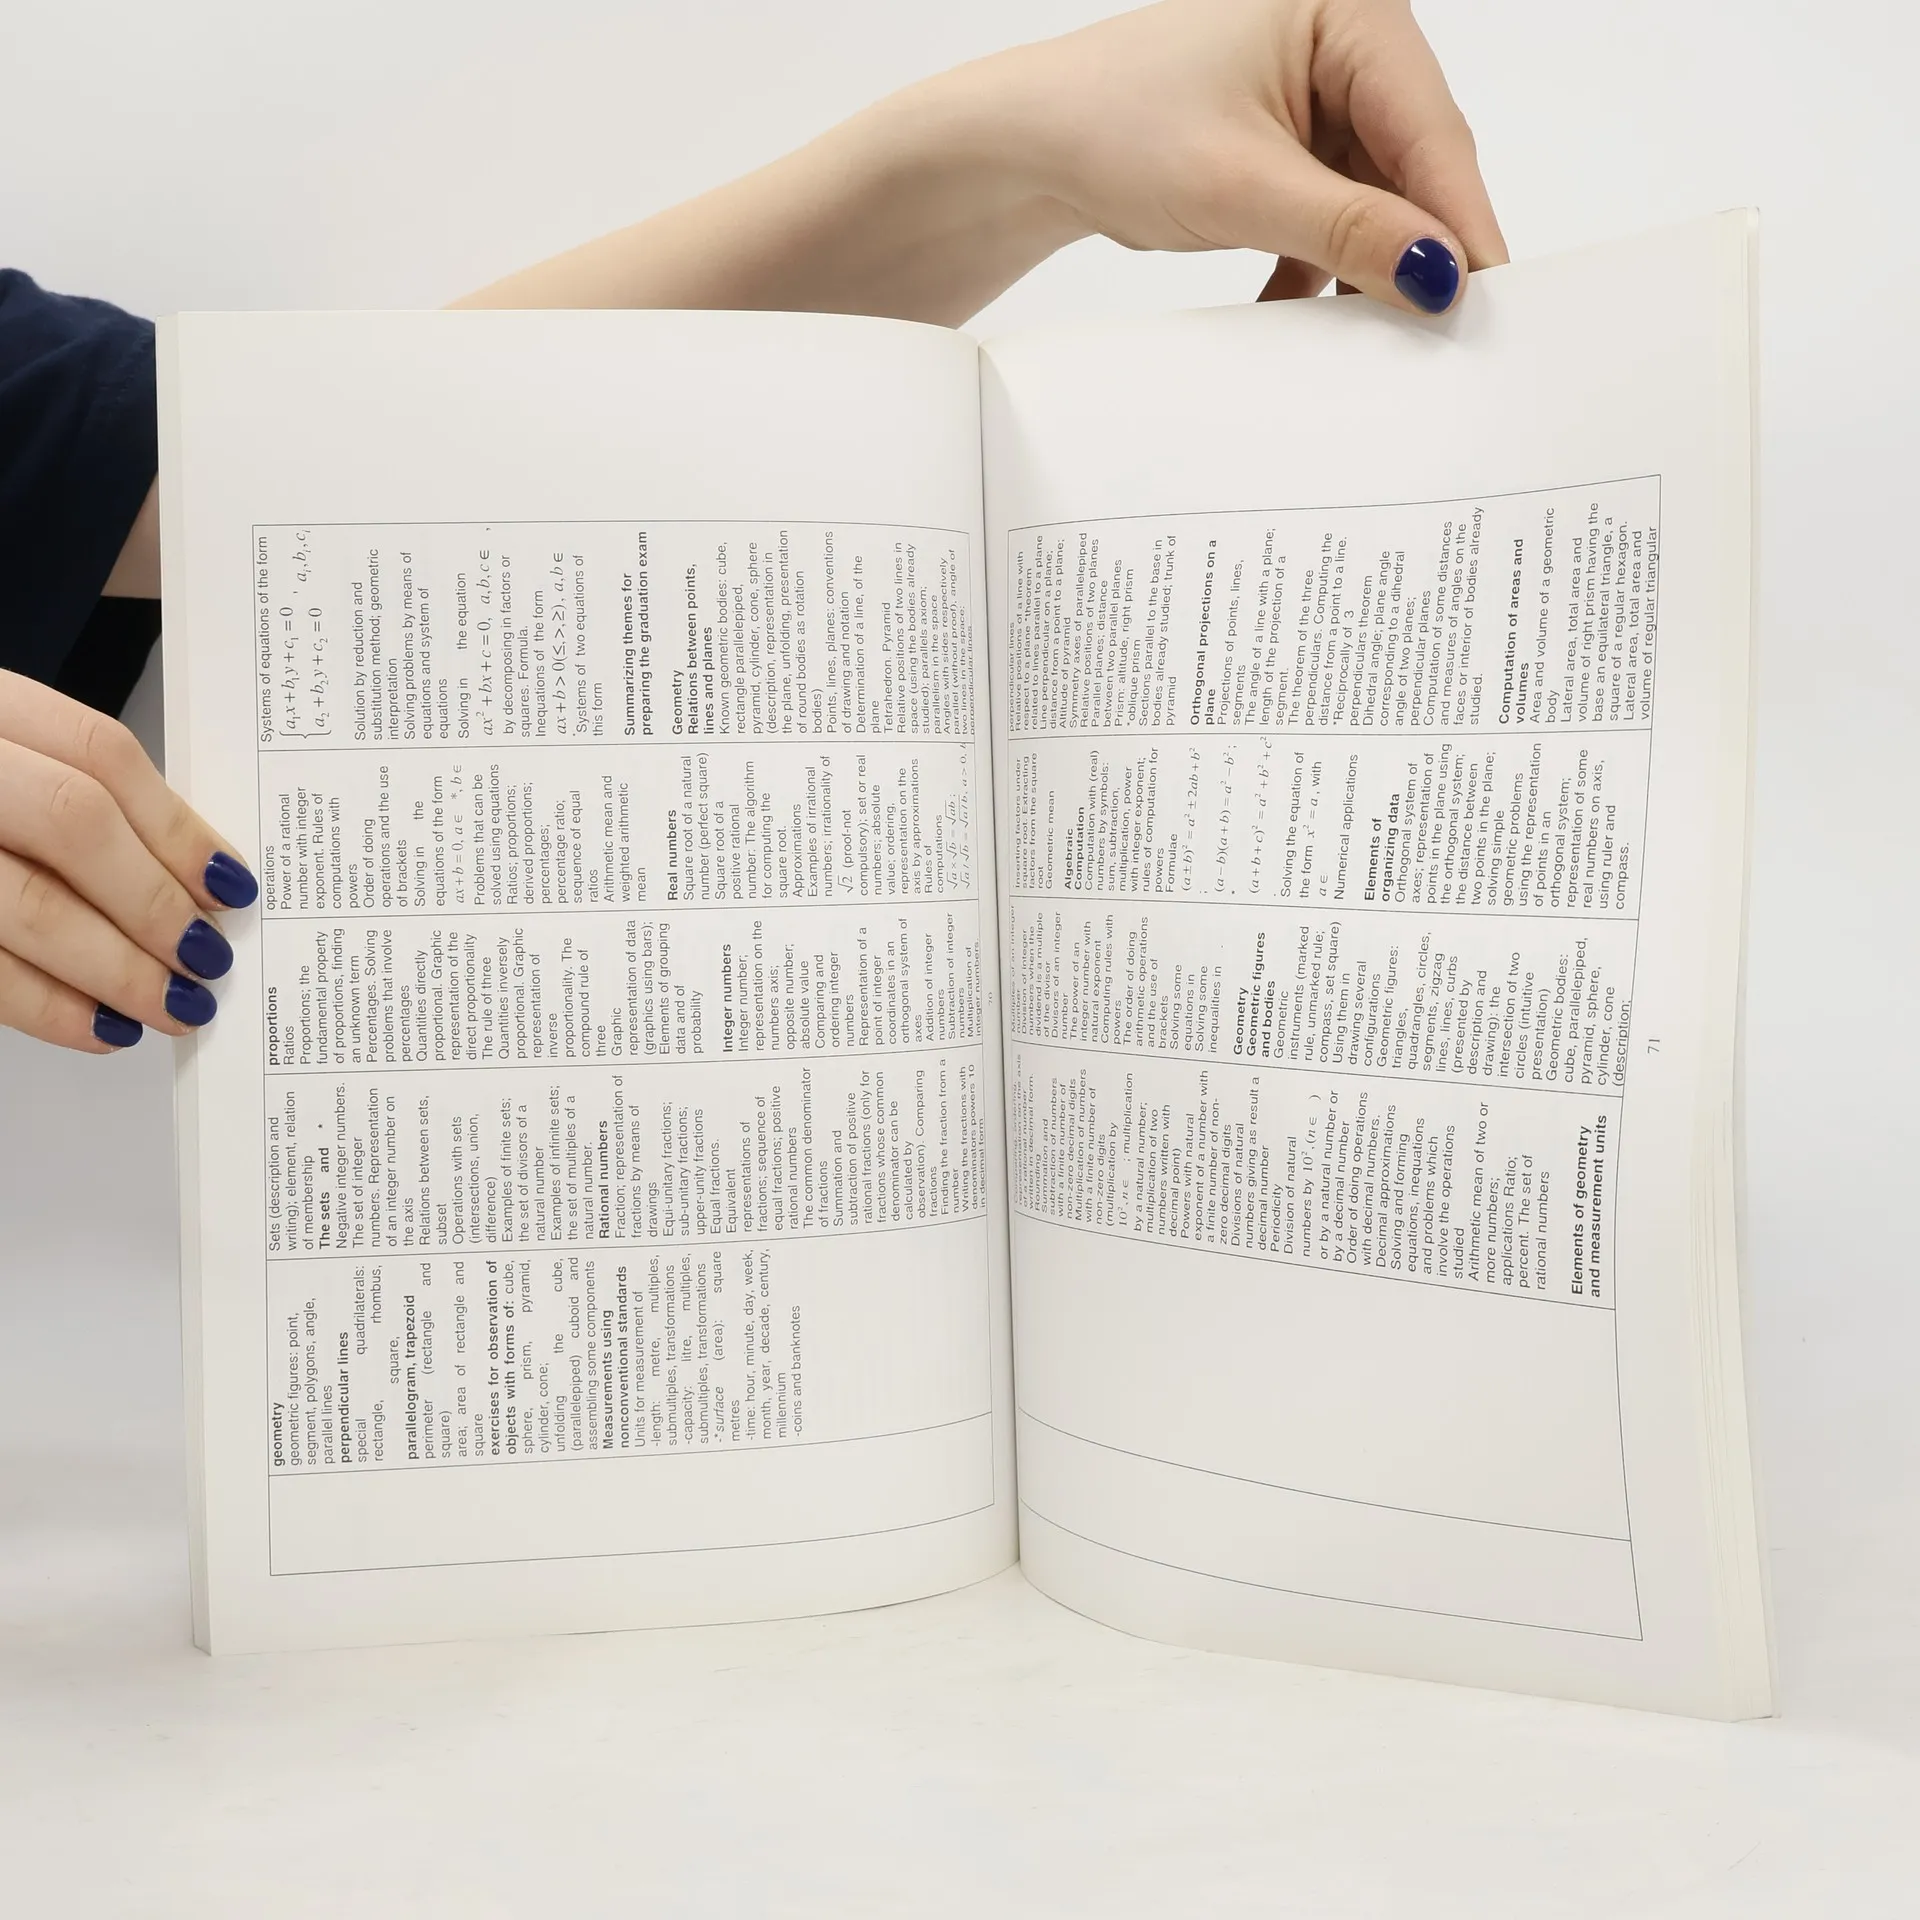 geometry
geometric figures: point,
segment, polygons, angle,
parallel lines
perpendicular lines
special quadrilaterals:
rectangle, rhombus,
square,
parallelogram, trapezoid
perimeter (rectangle and
square)
area; area of rectangle and
square
exercises for observation of
objects with forms of: cube,
sphere, prism, pyramid,
cylinder, cone;
unfolding the cube,
(parallelepiped) cuboid and
assembling some components
Measurements using
nonconventional standards
Units for measurement of
-length: metre, multiples,
submultiples, transformations
-capacity: litre, multiples,
submultiples, transformations
-*surface (area): square
metres
-time: hour, minute, day, week,
month, year, decade, century,
millennium
-coins and banknotes
Sets (description and
writing); element, relation
of membership
The sets and *
Negative integer numbers.
The set of integer
numbers. Representation
of an integer number on
the axis
Relations between sets,
subset
Operations with sets
(intersections, union,
difference)
Examples of finite sets;
the set of divisors of a
natural number
Examples of infinite sets;
the set of multiples of a
natural number.
Rational numbers
Fraction; representation of
fractions by means of
drawings
Equi-unitary fractions;
sub-unitary fractions;
upper-unity fractions
Equal fractions.
Equivalent
representations of
fractions; sequence of
equal fractions; positive
rational numbers
The common denominator
of fractions
Summation and
subtraction of positive
rational fractions (only for
fractions whose common
denominator can be
calculated by
observation). Comparing
fractions
Finding the fraction from a
number
Writing the fractions with
denominators powers 10
in decimal form
proportions
Ratios
Proportions; the
fundamental property
of proportions, finding
an unknown term
Percentages. Solving
problems that involve
percentages
Quantities directly
proportional. Graphic
representation of the
direct proportionality
The rule of three
Quantities inversely
proportional. Graphic
representation of
inverse
proportionality. The
compound rule of
three
Graphic
representation of data
(graphics using bars);
Elements of grouping
data and of
probability
Integer numbers
Integer number;
representation on the
numbers axis;
opposite number;
absolute value
Comparing and
ordering integer
numbers
Representation of a
point of integer
coordinates in an
orthogonal system of
axes
Addition of integer
numbers
Subtraction of integer
numbers
Multiplication of
integer numbers
operations
Power of a rational
number with integer
exponent. Rules of
computations with
powers
Order of doing
operations and the use
of brackets
Solving in the
equations of the form
ax + b = 0, a ∈ *, b ∈
Problems that can be
solved using equations
Ratios; proportions;
derived proportions;
percentages;
percentage ratio;
sequence of equal
ratios
Arithmetic mean and
weighted arithmetic
mean
Real numbers
Square root of a natural
number (perfect square)
Square root of a
positive rational
number. The algorithm
for computing the
square root.
Approximations
Examples of irrational
numbers; irrationality of
√2 (proof-not
compulsory); set or real
numbers; absolute
value; ordering,
representation on the
axis by approximations
Rules of
computations
√a × √b = √ab ;
√a / √b = √a / b, a > 0,
Systems of equations of the form
{a₁x + b₁y + c₁ = 0 , aᵢ, bᵢ, cᵢ
{a₂ + b₂y + c₂ = 0
Solution by reduction and
substitution method; geometric
interpretation
Solving problems by means of
equations and system of
equations
Solving in the equation
ax² + bx + c = 0, a, b, c ∈ ,
by decomposing in factors or
squares. Formula.
Inequations of the form
ax + b > 0(≤, >, ≥), a, b ∈
*Systems of two equations of
this form
Summarizing themes for
preparing the graduation exam
Geometry
Relations between points,
lines and planes
Known geometric bodies: cube,
rectangle parallelepiped,
pyramid, cylinder, cone, sphere
(description, representation in
the plane, unfolding, presentation
of round bodies as rotation
bodies)
Points, lines, planes: conventions
of drawing and notation
Determination of a line, of the
plane
Tetrahedron. Pyramid
Relative positions of two lines in
space (using the bodies already
studied); parallels axiom;
parallelism in the space
Angles with sides respectively
parallel (without proof), angle of
two lines in the space;
perpendicular lines
70
representation on the axis
of a rational number
written in decimal form.
Rounding
Summation and
subtraction of numbers
with a finite number of
non-zero decimal digits
Multiplication of numbers
with a finite number of
non-zero digits
(multiplication by
10², n ∈ ; multiplication
by a natural number;
multiplication of two
numbers written with
decimal point)
Powers with natural
exponent of a number with
a finite number of non-
zero decimal digits
Divisions of natural
numbers giving as result a
decimal number
Periodicity
Division of natural
numbers by 10², (n ∈ )
or by a natural number or
by a decimal number
Order of doing operations
with decimal numbers.
Decimal approximations
Solving and forming
equations, inequations
and problems which
involve the operations
studied
Arithmetic mean of two or
more numbers;
applications Ratio;
percent. The set of
rational numbers
Elements of geometry
and measurement units
Multiples of an integer
number
Division of integer
numbers when the
dividend is a multiple
of the divisor
Divisors of an integer
number
The power of an
integer number with
natural exponent
Computing rules with
powers
The order of doing
arithmetic operations
and the use of
brackets
Solving some
equations in
Solving some
inequalities in .
Geometry
Geometric figures
and bodies
Geometric
instruments (marked
rule, unmarked rule;
compass, set square)
Using them in
drawing several
configurations
Geometric figures:
triangles,
quadrangles, circles,
segments, zigzag
lines, lines, curbs
(presented by
description and
drawing): the
intersection of two
circles (intuitive
presentation)
Geometric bodies:
cube, parallelepiped,
pyramid, sphere,
cylinder, cone
(description;
Inserting factors under
square root. Extracting
factors from the square
root
Geometric mean
Algebraic
Computation
Computation with (real)
numbers by symbols:
sum, subtraction,
multiplication, power
with integer exponent;
rules of computation for
powers
Formulae
(a ± b)² = a² ± 2ab + b²
;
(a − b)(a + b) = a² − b² ;
(a + b + c)² = a² + b² + c²
Solving the equation of
the form x² = a , with
a ∈
Numerical applications
Elements of
organizing data
Orthogonal system of
axes; representation of
points in the plane using
the orthogonal system;
the distance between
two points in the plane;
solving simple
geometric problems
using the representation
of points in an
orthogonal system;
representation of some
real numbers on axis,
using ruler and
compass.
perpendicular lines
Relative positions of a line with
respect to a plane *theorem
related to lines parallel to a plane
Line perpendicular on a plane;
distance from a point to a plane;
Altitude of pyramid
Symmetry axes of parallelepiped
Relative positions of two planes
Parallel planes; distance
between two parallel planes
Prism; altitude, right prism
*oblique prism
Sections parallel to the base in
bodies already studied; trunk of
pyramid
Orthogonal projections on a
plane
Projections of points, lines,
segments
The angle of a line with a plane;
length of the projection of a
segment.
The theorem of the three
perpendiculars. Computing the
distance from a point to a line.
*Reciprocally of 3
perpendiculars theorem
Dihedral angle; plane angle
corresponding to a dihedral
angle of two planes;
perpendicular planes
Computation of some distances
and measures of angles on the
faces or interior of bodies already
studied.
Computation of areas and
volumes
Area and volume of a geometric
body
Lateral area, total area and
volume of right prism having the
base an equilateral triangle, a
square of a regular hexagon.
Lateral area, total area and
volume of regular triangular
71